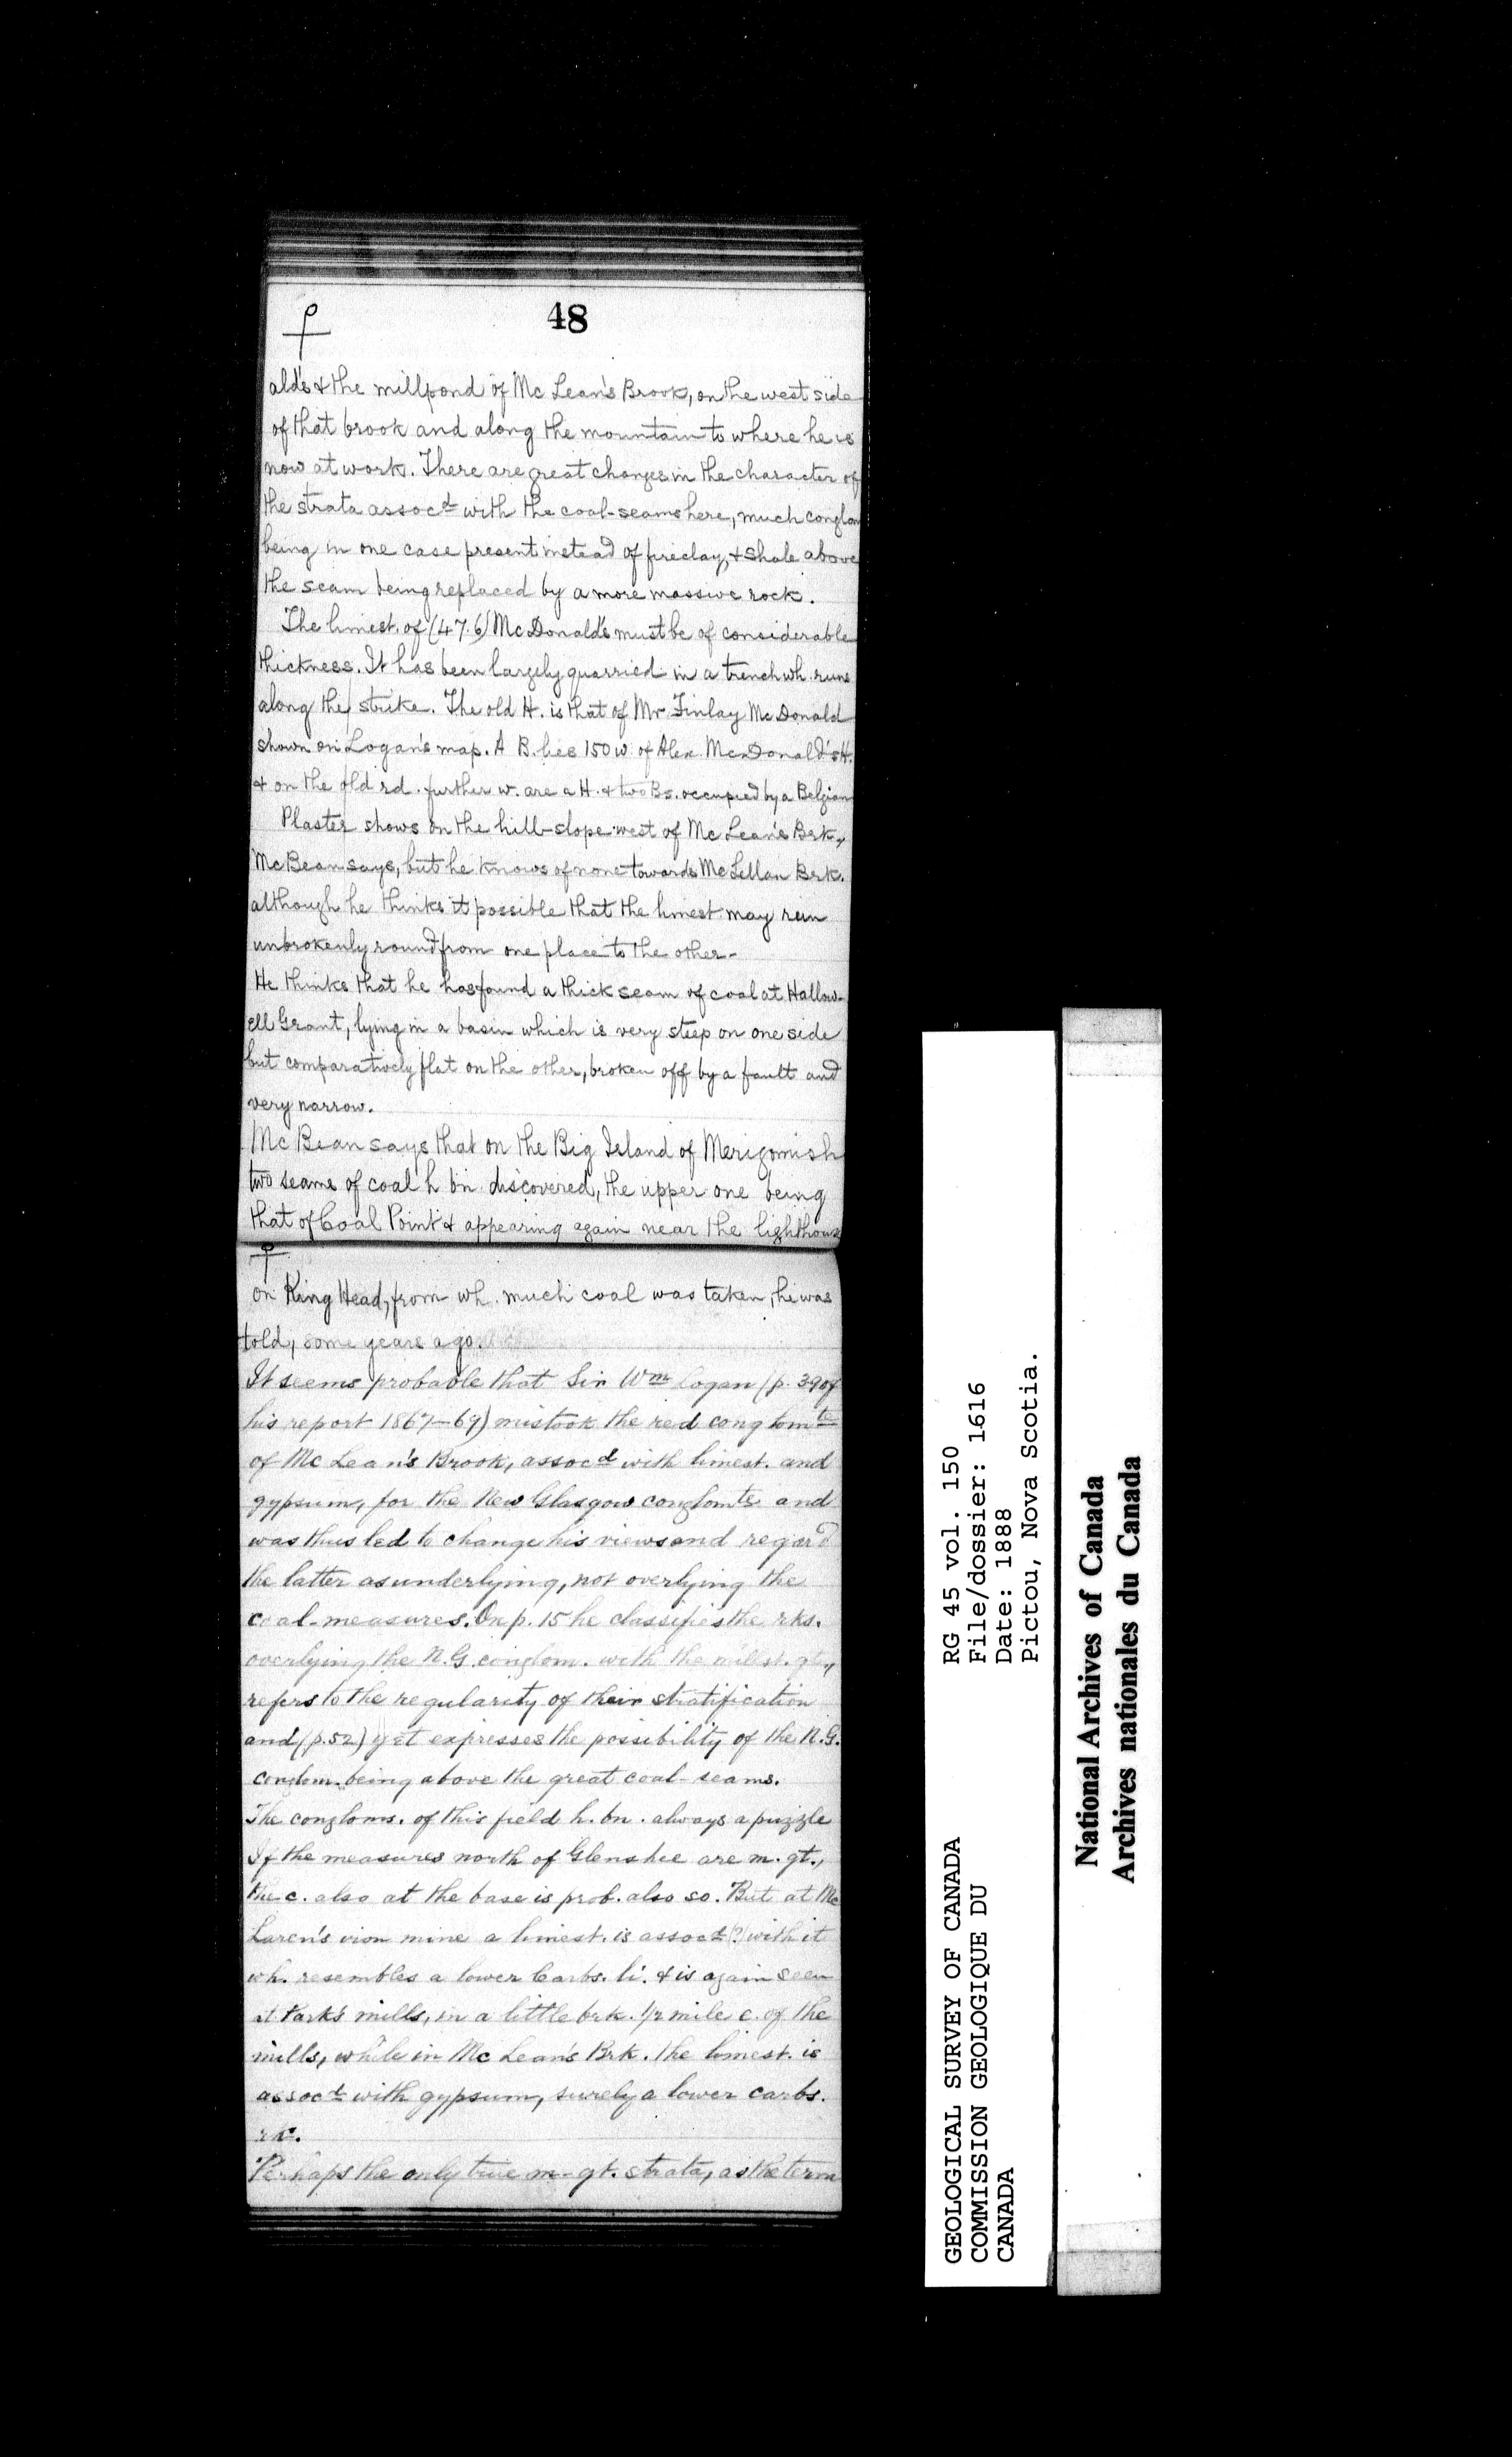 48
ald's & the millpond of McLean's Brook, on the west side
of that brook and along the mountain to where he is
now at work. There are great changes in the character of
the strata assocd with the coal-seams here, much conglom
being in one case present instead of fireclay, & shale above
the seam being replaced by a more massive rock.
The limest. of (47.6) McDonald's must be of considerable
thickness. It has been largely quarried in a trench wh. runs
along the strike. The old H. is that of Mr Finlay McDonald
shown on Logan's map. A B. lies 150 w. of Alex. McDonald's H.
& on the old rd. further w. are a H. & two Bs. occupied by a Belgian
Plaster shows on the hill-slope west of McLean's Brk.,
McBean says, but he knows of none towards McLellan Brk.
although he thinks it possible that the limest may run
unbrokenly round from one place to the other-
He thinks that he has found a thick seam of coal at Hallow-
ell Grant, lying in a basin which is very steep on one side
but comparatively flat on the other, broken off by a fault and
very narrow.
McBean says that on the Big Island of Merigomish
two seams of coal h bn discovered, the upper one being
that of Coal Point & appearing again near the lighthouse
on King Head, from wh. much coal was taken, he was
told, some years ago.
It seems probable that Sir Wm Logan (p. 39 of
his report 1867-69) mistook the red conglomte
of McLean's Brook, assocd with limest. and
gypsum, for the New Glasgow conglomte and
was thus led to change his views and regard
the latter as underlying, not overlying the
coal-measures. On p. 15 he classifies the rks.
overlying the N.G. conglom. with the millst. gt.,
refers to the regularity of their stratification
and (p. 52) yet expresses the possibility of the N.G.
conglom. being above the great coal-seams.
The congloms. of this field h. bn. always a puzzle
If the measures north of Glenshee are m. gt.,
the c. also at the base is prob. also so. But at Mc
Laren's iron mine a limest. is assocd (?) with it
wh. resembles a lower Carbs. li. & is again seen
at Park's mills, in a little brk. 1/2 mile e. of the
mills, while in McLean's Brk. the limest. is
assocd with gypsum, surely a lower carbs.
rk.
Perhaps the only true m-gt. strata, as the term
GEOLOGICAL SURVEY OF CANADA
COMMISSION GEOLOGIQUE DU
CANADA
RG 45 vol. 150
File/dossier: 1616
Date: 1888
Pictou, Nova Scotia.
National Archives of Canada
Archives nationales du Canada